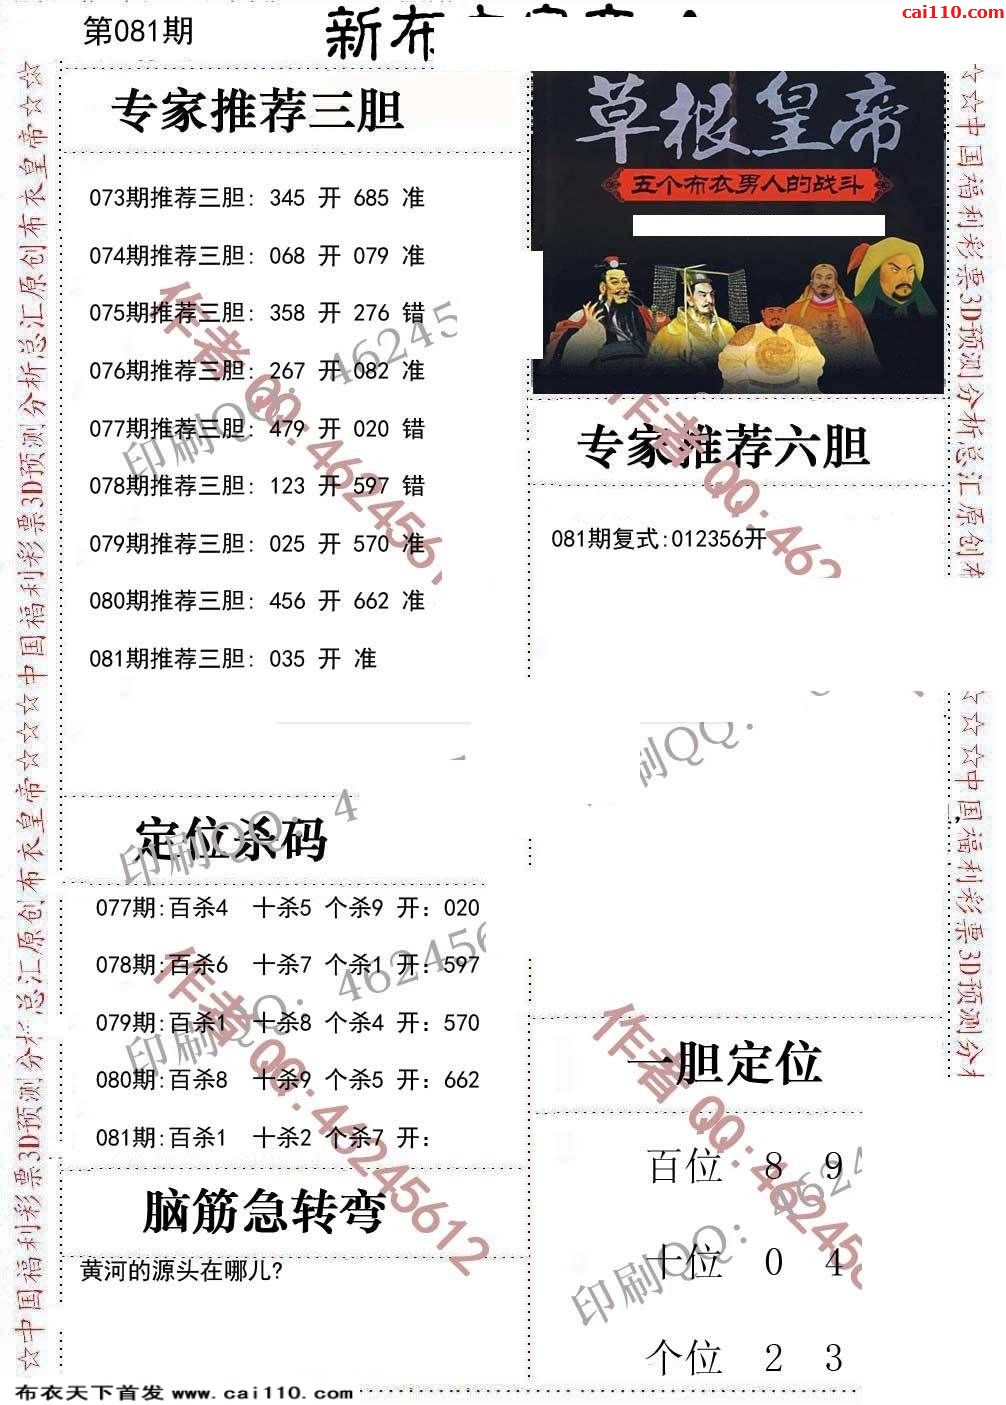 cai110.com
第081期
新布
专家推荐三胆
073期推荐三胆: 345 开 685 准
074期推荐三胆: 068 开 079 准
075期推荐三胆: 358 开 276 错
076期推荐三胆: 267 开 082 准
077期推荐三胆: 479 开 020 错
078期推荐三胆: 123 开 597 错
079期推荐三胆: 025 开 570 准
080期推荐三胆: 456 开 662 准
081期推荐三胆: 035 开 准
草根皇帝
五个布衣男人的战斗
专家推荐六胆
081期复式:012356开
定位杀码
077期:百杀4 十杀5 个杀9 开: 020
078期:百杀6 十杀7 个杀1 开: 597
079期:百杀1 十杀8 个杀4 开: 570
080期:百杀8 十杀9 个杀5 开: 662
081期:百杀1 十杀2 个杀7 开:
脑筋急转弯
黄河的源头在哪儿?
一胆定位
百位 8 9
十位 0 4
个位 2 3
☆中国福利彩票3D预测分析总汇原创布衣皇帝☆☆☆中国福利彩票3D预测分析总汇原创布衣皇帝☆☆
☆☆中国福利彩票3D预测分析总汇原创布
☆☆☆中国福利彩票3D预测分析
作者QQ:46245612
印刷QQ: 46245
作者QQ:462
印刷QQ: 4
刷QQ:
作者QQ:46245612
印刷QQ: 462456
作者QQ:462456
印刷QQ: 4624
布衣天下首发 www.cai110.com